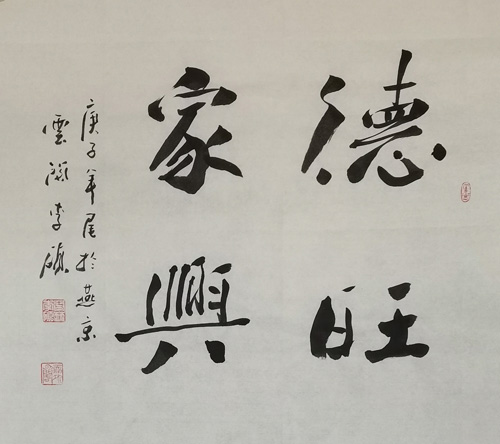 德旺
家興
庚子年尾於燕京
雲澗李碩